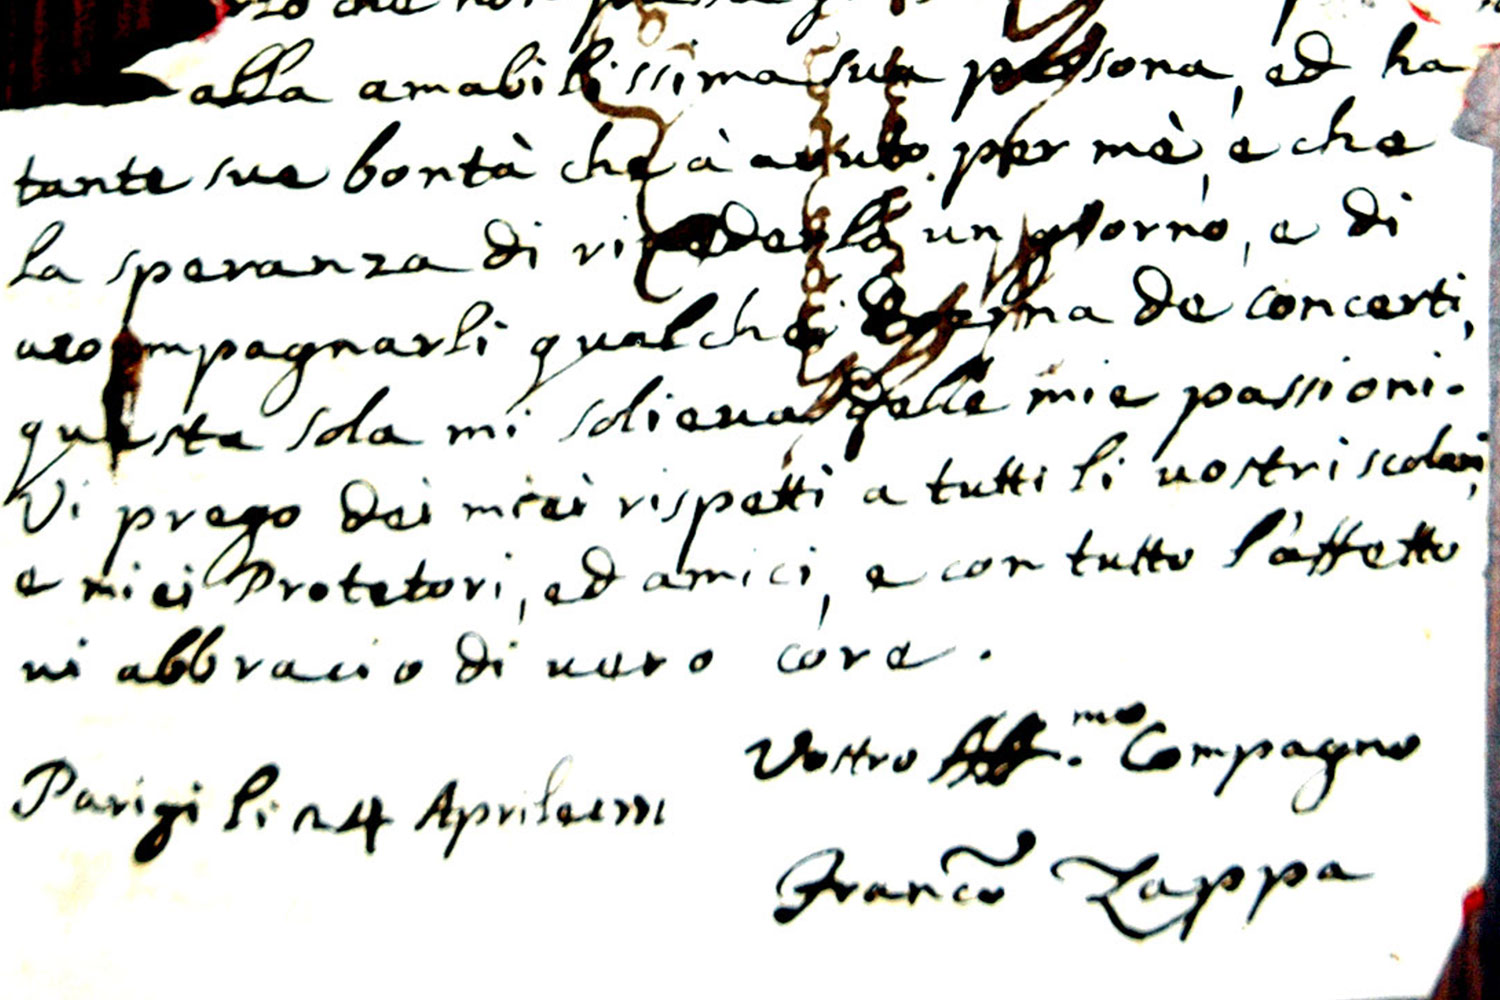 che non
alla amabilissima sua persona, ed ha
tante sue bontà che à auuto per mè, e che
la speranza di riuederla un giorno, e di
acompagnarli qualche de concerti,
questa sola mi solieua delle mie passioni.
Vi prego dei miei rispetti a tutti li uostri scolari,
e miei Protetori, ed amici, e con tutto l'affetto
ui abbracio di uero core.
Vostro Aff.mo Compagno
Parigi li 24 Aprile
Franco Zappa